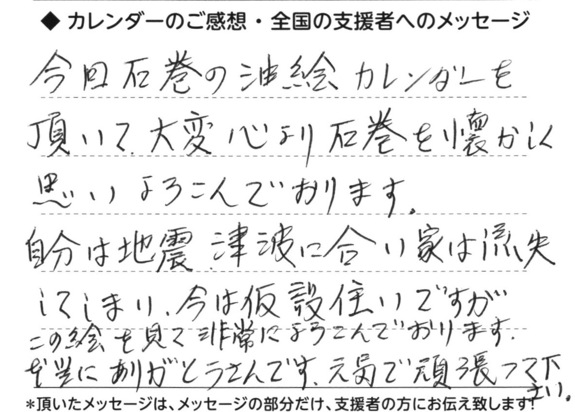 ◆ カレンダーのご感想・全国の支援者へのメッセージ
今回石巻の油絵カレンダーを
頂いて、大変心より石巻を懐かしく
思いよろこんでおります。
自分は地震、津波に合い家は流失
してしまい、今は仮設住いですが
この絵を見て非常によろこんでおります。
本当にありがとうさんです。元気で頑張って下
さい。
*頂いたメッセージは、メッセージの部分だけ、支援者の方にお伝え致します!